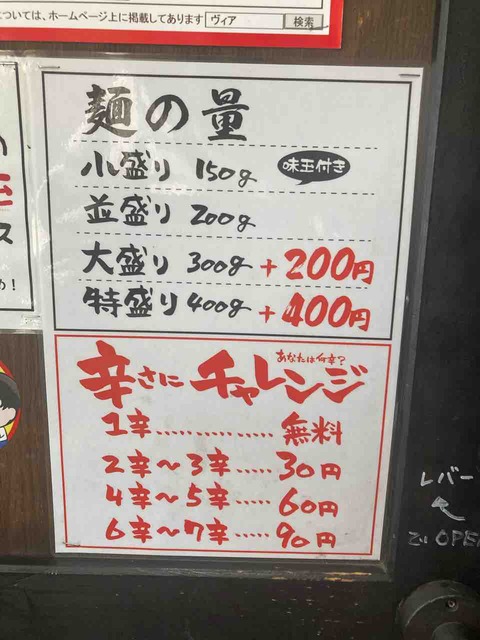 については、ホームページ上に掲載してあります ヴィア 検索
麺の量
小盛り 150g 味玉付き
並盛り 200g
大盛り 300g +200円
特盛り 400g +400円
あなたは何辛?
辛さにチャレンジ
1辛............. 無料
2辛~3辛..... 30円
4辛~5辛..... 60円
6辛~7辛..... 90円
ス
め!
レバー
OPE